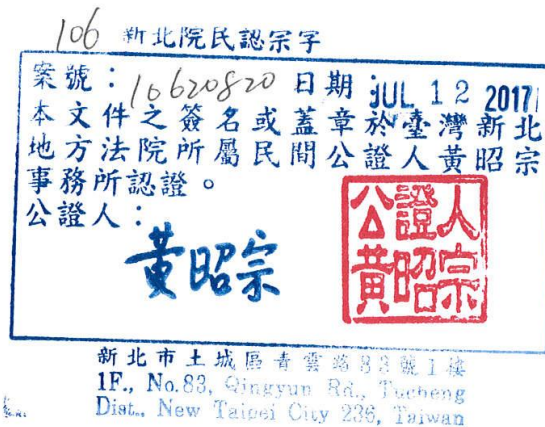 106 新北院民認宗字
案號：10620820 日期：JUL 12 2017
本文件之簽名或蓋章於臺灣新北
地方法院所屬民間公證人黃昭宗
事務所認證。
公證人：
黃昭宗
公證人
黃昭宗
新北市土城區青雲路83號1樓
1F., No.83, Qingyun Rd., Tucheng
Dist., New Taipei City 236, Taiwan